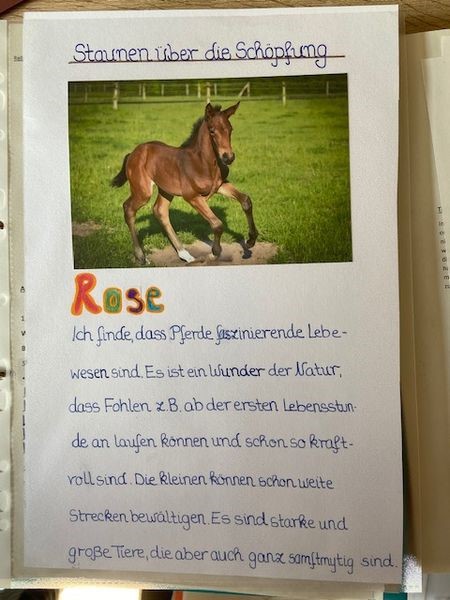 Staunen über die Schöpfung
Rose
Ich finde, dass Pferde faszinierende Lebe-
wesen sind. Es ist ein Wunder der Natur,
dass Fohlen z.B. ab der ersten Lebensstun-
de an laufen können und schon so kraft-
voll sind. Die kleinen können schon weite
Strecken bewältigen. Es sind starke und
große Tiere, die aber auch ganz samftmytig sind.